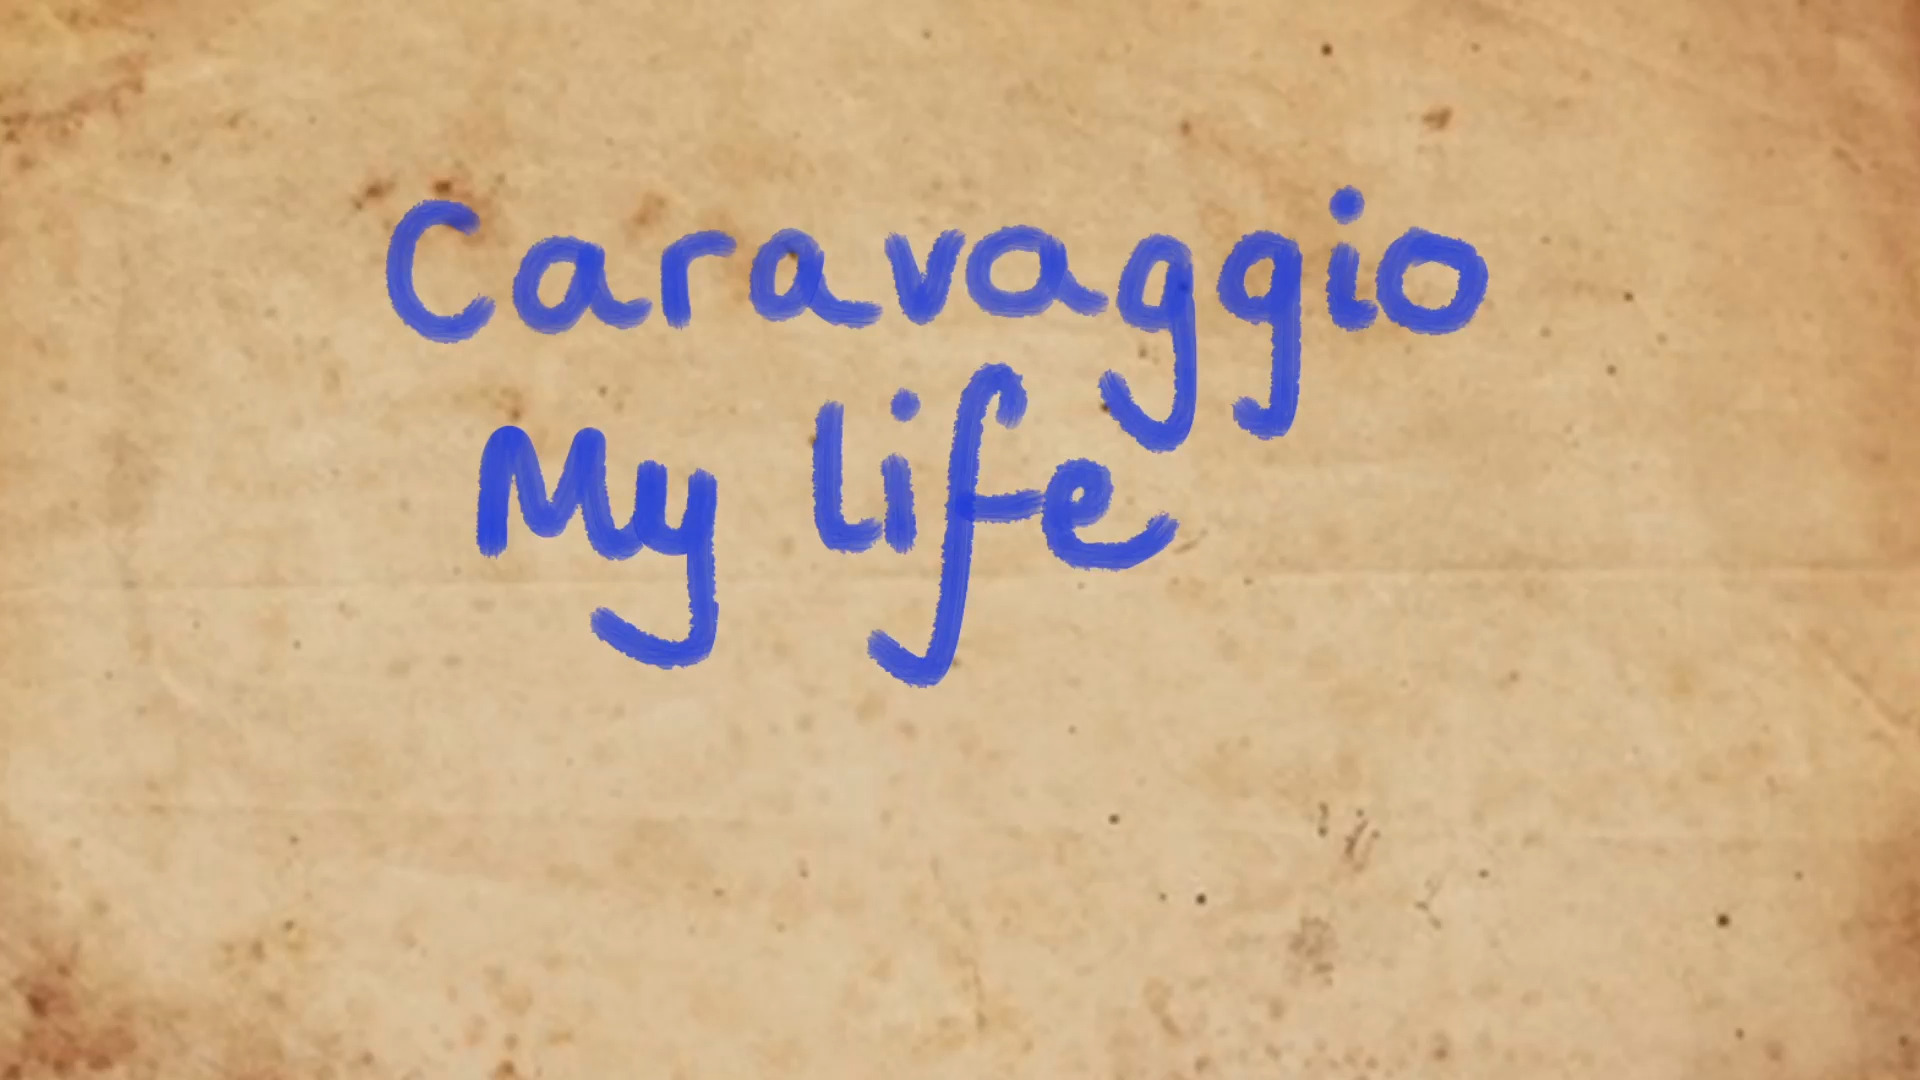 Caravaggio
My life